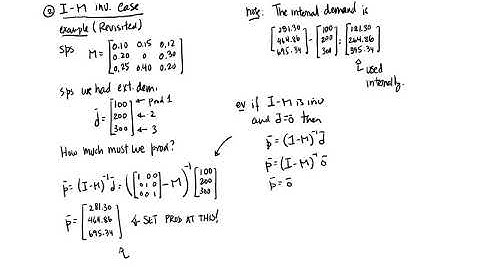 ② I-M inv. case
example (Revisited)
sps M = [0.10 0.15 0.12
0.20 0 0.30
0.25 0.40 0.20]
sps we had ext. dem.
d̄ = [100 ← prod 1
200 ← 2
300] ← 3
How much must we prod?
p̄ = (I-M)⁻¹ d̄ = ([1 0 0
0 1 0
0 0 1] - M)⁻¹ [100
200
300]
p̄ = [281.30
464.86
695.34] ← SET PROD AT THIS!
note: The internal demand is
[281.30
464.86
695.34] - [100
200
300] = [181.30
264.86
395.34]
used
internally.
ex if I-M is inv
and d̄=ō then
p̄ = (I-M)⁻¹ d̄
p̄ = (I-M)⁻¹ ō
p̄ = ō